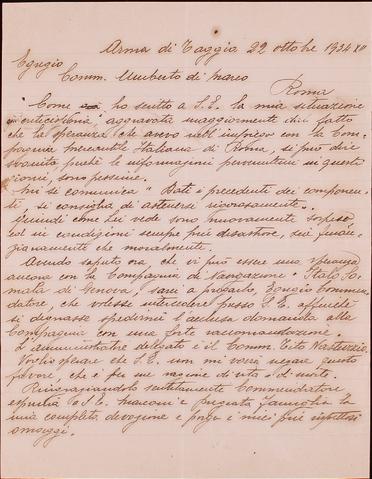 Arma di Taggia 22 ottobre 1934 XII
Egregio
Comm. Umberto di Marco
Roma
Come ho scritto a S.E. la mia situazione
si è aggravata maggiormente dal fatto
che la speranza che avevo nell'impiego con la Com-
pagnia Mercantile Italiana di Roma, si può dire
svanita perché le informazioni pervenutami in questo
sono pessime.
Mi si comunica "Dati i precedenti dei componen-
ti, si consiglia di astenersi rigorosamente".
Quindi come Lei vede sono nuovamente sospeso
ed in condizioni sempre più disastrose, sia finan-
ziariamente che moralmente.
Avendo saputo ora che vi può essere una speranza
ancora con la Compagnia di Navigazione "Italo So-
mala di Genova, sarei a pregarla Egregio Commen-
datore, che volesse intercedere presso S.E. affinché
si degnasse spedirmi l'acclusa domanda alla
Compagnia con una forte raccomandazione.
L'amministratore delegato è il Comm. Tito Nasturzio.
Voglio sperare che S.E. non mi vorrà negare questo
favore, che è per me ragione di vita o di morte.
Ringraziandola sentitamente Commendatore
a S.E. Marconi e pregiata Famiglia la
mia completa devozione e porgo i miei più rispettosi
omaggi.